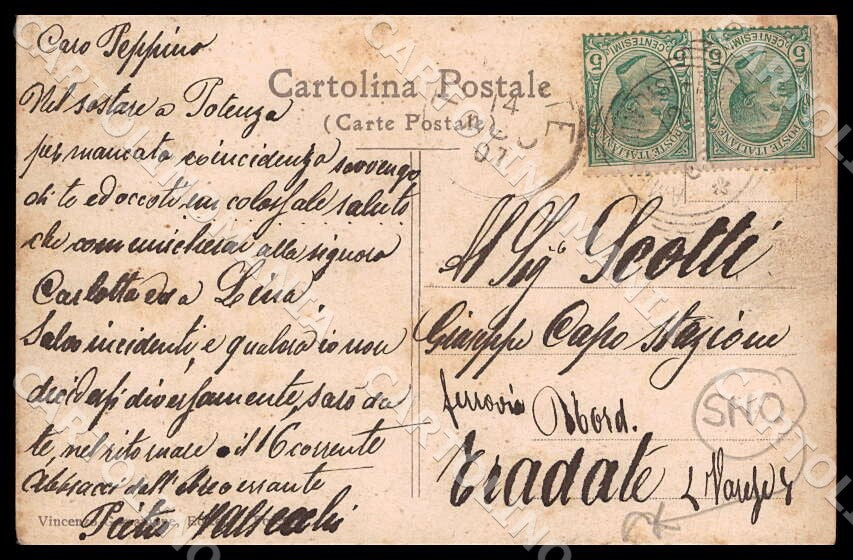 Caro Peppino
Nel sostare a Potenza
per mancata coincidenza sovvengo
di te ed eccoti un colossale saluto
che comunicherai alla signora
Carlotta ed a Lina.
Salvo incidenti, e qualora io non
decidessi diversamente, sarò da
te, nel ritornare il 16 corrente
Abbracci dell'
errante
Pietro
Vincenzo
Cartolina Postale
(Carte Postale)
14
07
CENTESIMI
5
POSTE ITALIANE
CENTESIMI
5
POSTE ITALIANE
Al Sigr Scotti
Giuseppe Capo Stazione
ferrovia Nord.
Tradate
(Varese)
SNO
CARTOLINOMANIA